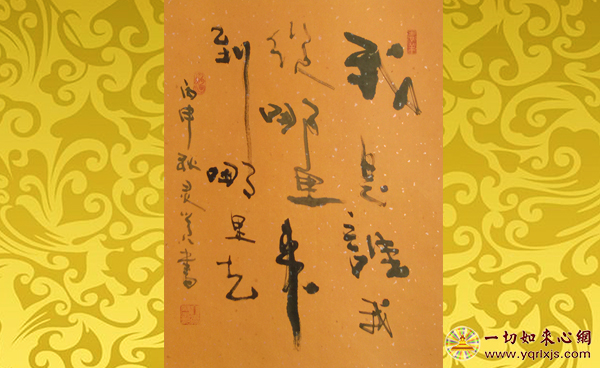 我是誰我
從哪里來
到哪里去
丙申秋灵書
一切如來心網
www.yqrlxjs.com